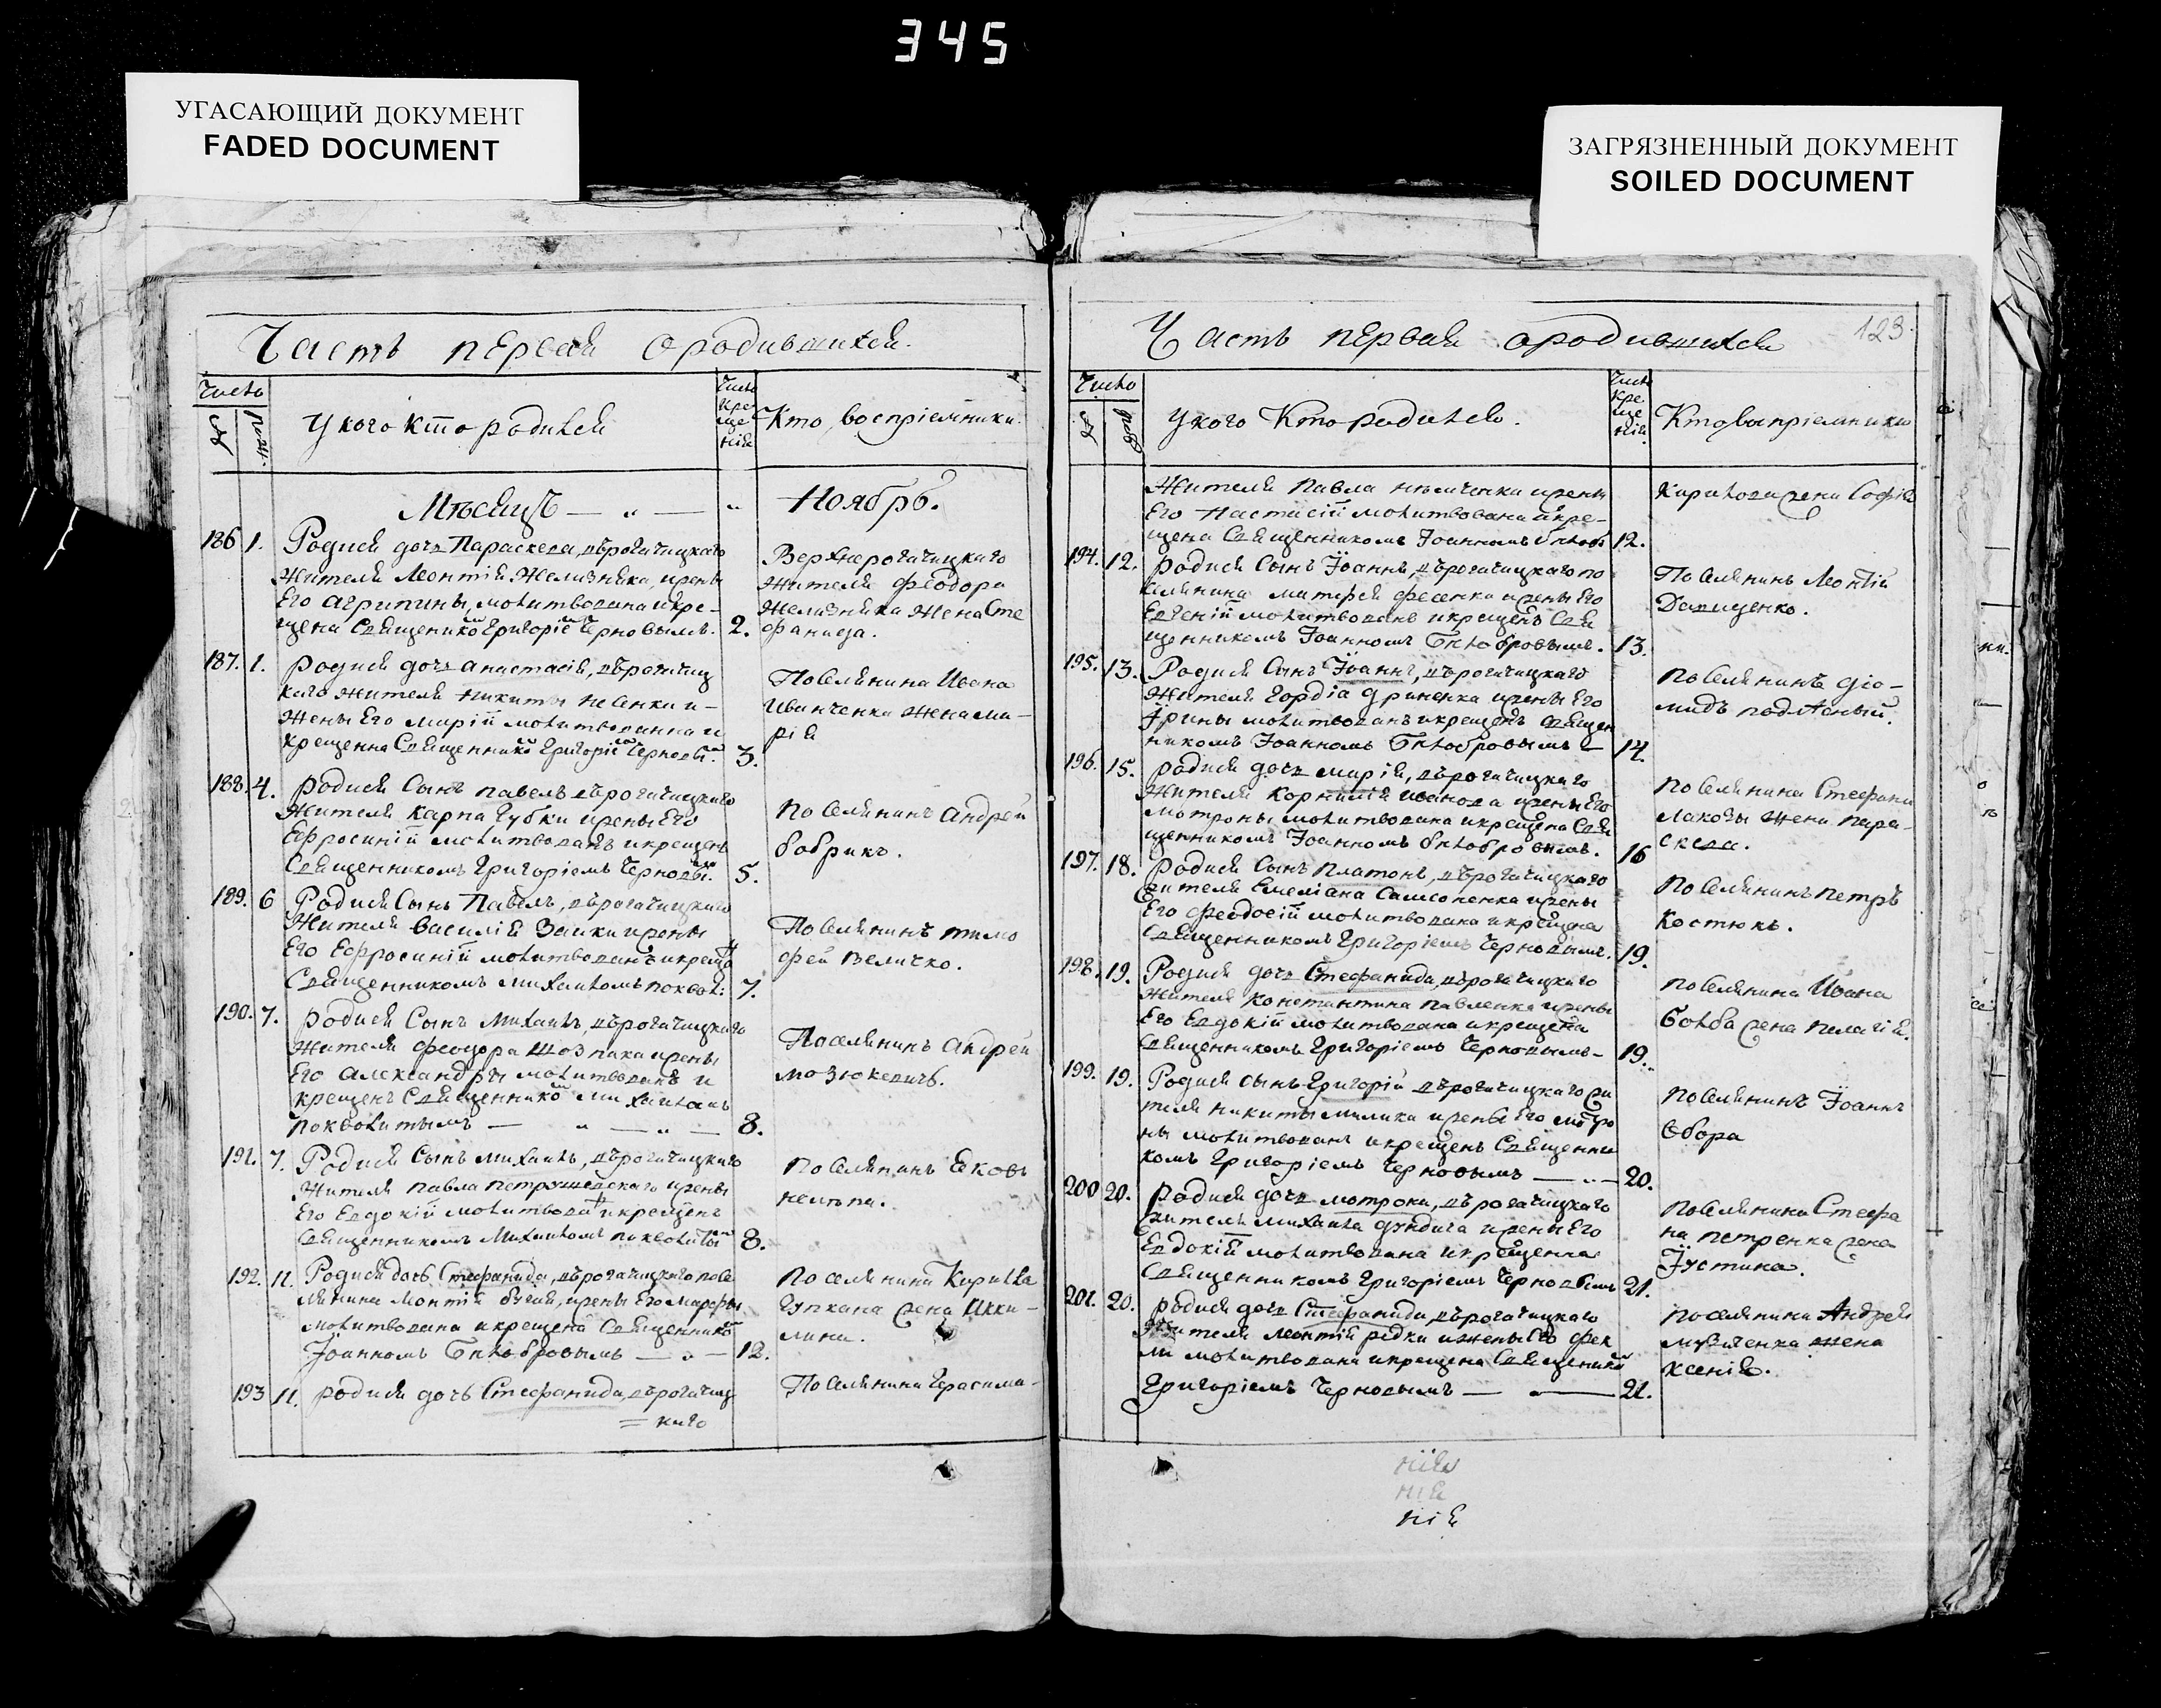 345
УГАСАЮЩИЙ ДОКУМЕНТ
FADED DOCUMENT
ЗАГРЯЗНЕННЫЙ ДОКУМЕНТ
SOILED DOCUMENT
Часть первая ородившихся.
Число
У кого кто родился
Число креще нія
Кто воспріемники.
Мѣсяцъ — „ — „ Ноябрь.
186 1. Родися дочь Параскева, вѣрогачицкаго
жителя Леонтія Желизняка, и жены
Его Агрипины, молитвована и кре-
щена Священнико Григоріе Черновымъ. 2.
Верхнерогачицкаго
жителя Феодора
Желизняка жена Сте
фанида.
187. 1. родися дочь Анастасія, вѣрогачиц
каго жителя Никиты Несенка и
жены Его Маріи молитвованна и
крещенна Священнико Григоріе Черновы. 3.
Поселянина Ивана
Иванченка жена Ма-
рія
188. 4. родися Сынъ Павелъ вѣрогачицкаго
жителя Карпа Губки и жены Его
Ефросиніи молитвованъ и крещенъ
Священникомъ Григоріемъ Черновы. 5.
Поселянинъ Андрей
бобрикъ.
189. 6 Родися Сынъ Павелъ, вѣрогачицкаго
жителя Василія Заики и жены
Его Ефросиніи молитвованъ и креще
Священникомъ Михаиломъ похвал: 7.
Поселянинъ Тимо
фей Величко.
190. 7. родися Сынъ Михаилъ, вѣрогачицкаго
жителя Феодора и жены
Его Александры молитвованъ и
крещенъ Священнико Михаиломъ
Похвалитымъ — „ — „ — 8.
Поселянинъ Андрей
мозюкевичъ.
191. 7. Родися Сынъ Михаилъ, вѣрогачицкаго
жителя Павла Петрушевскаго и жены
Его Евдокіи молитвова и крещенъ
Священникомъ Михаиломъ похвалиты 8.
Поселянинъ Яковъ
нелѣпа.
192. 11. Родися дочь Стефанида, вѣрогачицкаго посе
лянина Леонтія бугая, и жены Его Марфы
молитвована и крещена Священнико
Іоанномъ Бѣлобровымъ — „ — 12.
Поселянина Кирилла
жена Акки-
лина.
193 11. родися дочь Стефанида, вѣрогачиц
= каго
Поселянина Герасима
Часть первая ородившихся
123
Число
У кого кто родился.
Число кре ще нія.
Кто воспріемники
жителя Павла и жены
Его Настасіи молитвована и кре-
щена Священникомъ Іоанномъ бѣлоб 12.
Кирилова жена Софія
194. 12. родися Сынъ Іоаннъ, вѣрогачицкаго по
селянина Матфея Фесенка и жены Его
Евгеніи молитвованъ и крещенъ Свя
щенникомъ Іоанномъ Бѣлобровымъ. 13.
Поселянинъ Леонтій
Давиденко.
195. 13. Родися Сынъ Іоаннъ, вѣрогачицкаго
жителя Гордіа Гриненка и жены Его
Ірины молитвованъ и крещенъ Священ
никомъ Іоанномъ Бѣлобровымъ — 14.
Поселянинъ Діо-
мидъ подлѣсный.
196. 15. родися дочь Марія, вѣрогачицкаго
жителя Корнилія Иванова и жены Его
Мотроны молитвована и крещена Свя
щенникомъ Іоанномъ бѣлобровымъ. 16
Поселянина Стефана
жена Пара-
скева.
197. 18. родися Сынъ Платонъ, вѣрогачицкаго
жителя Емеліана Самсоненка и жены
Его Феодосіи молитвована и крещена
Священникомъ Григоріемъ Черновымъ. 19.
Поселянинъ Петръ
Костюкъ.
198. 19. Родися дочь Стефанида, вѣрогачицкаго
жителя Константина Павленка и жены
Его Евдокіи молитвована и крещена
Священникомъ Григоріемъ Черновымъ — 19.
Поселянина Ивана
жена Пелагія.
199. 19. Родися сынъ Григорій вѣрогачицкаго жи
теля Никиты и жены Его Мотро
ны молитвованъ и крещенъ Священни
комъ Григоріемъ Черновымъ — „ — 20.
Поселянинъ Іоаннъ
Сбора
200 20. родися дочь Мотрона, вѣрогачицкаго
жителя Михаила Дундича и жены Его
Евдокіи молитвована и крещенна
Священникомъ Григоріемъ Черновымъ 21.
Поселянина Стефа
на Петренка жена
Іустина.
201. 20. родися дочь Стефанида, вѣрогачицкаго
жителя Леонтія рѣдки и жены Его Фек
ли молитвована и крещена Священнико
Григоріемъ Черновымъ — 21.
Поселянина Андрея
жена
Ксенія.
нія
нія
нія